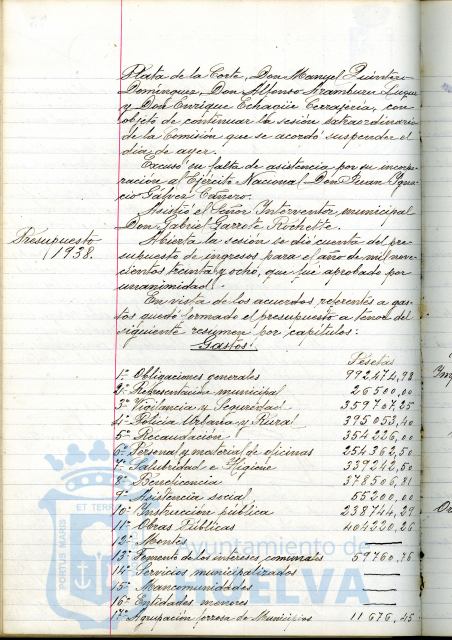 Plata de la Corte, Don Manuel Quintero
Domínguez, Don Alfonso Aramburu Luque
y Don Enrique Echagüe Cerrajería, con
objeto de continuar la sesión extraordinaria
de la Comisión que se acordó suspender el
día de ayer.
Excusó su falta de asistencia por su incorpo-
ración al Ejército Nacional Don Juan Igna-
cio Gálvez Cañero.
Asistió el Señor Interventor municipal
Don Gabriel Garrote Rochette.
Presupuesto
1938.
Abierta la sesión se dió cuenta del pre-
supuesto de ingresos para el año de mil nove-
cientos treinta y ocho, que fué aprobado por
unanimidad.
En vista de los acuerdos referentes a gas-
tos quedó formado el presupuesto a tenor del
siguiente resumen por capítulos:
Gastos!
Pesetas
1º Obligaciones generales 992474,98
2º Representación municipal 26500,00
3º Vigilancia y Seguridad 359707,25
4º Policía Urbana y Rural 395053,40
5º Recaudación 354226,00
6º Personal y material de oficinas 254362,50
7º Salubridad e Higiene 339242,50
8º Beneficencia 378506,81
9º Asistencia social 55200,00
10º Instrucción pública 238744,29
11º Obras Públicas 404220,26
12º Montes —
13º Fomento de los intereses comunales 59760,76
14º Servicios municipalizados —
15º Mancomunidades —
16º Entidades menores —
17º Agrupación forzosa de Municipios 11676,45
PORTUS MARIS ET TERR
Ayuntamiento de
HUELVA